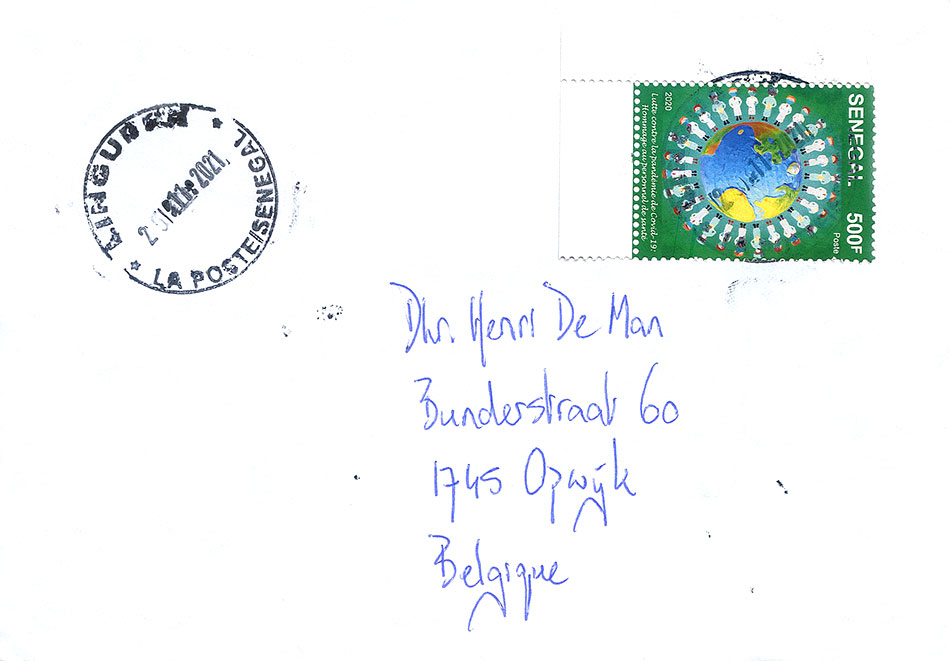 LINGUERE
2021.
LA POSTE/SENEGAL
SENEGAL
500F
Poste
2020
Lutte contre la pandémie de Covid-19:
Hommage au personnel de santé
Dhr. Henri De Man
Bunderstraat 60
1745 Opwijk
Belgique